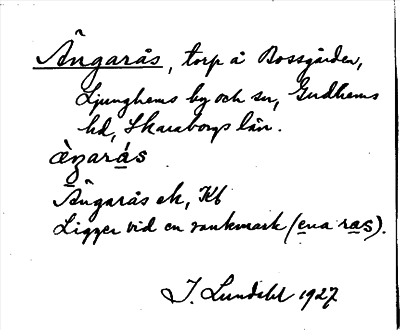 Ängarås, torp å Bossgården,
Ljunghems by och sn, Gudhems
hd, Skaraborgs län.
àŋarás
Ängarås ek, Kb
Ligger vid en vankmark (ena ras).
J. Lundahl 1927